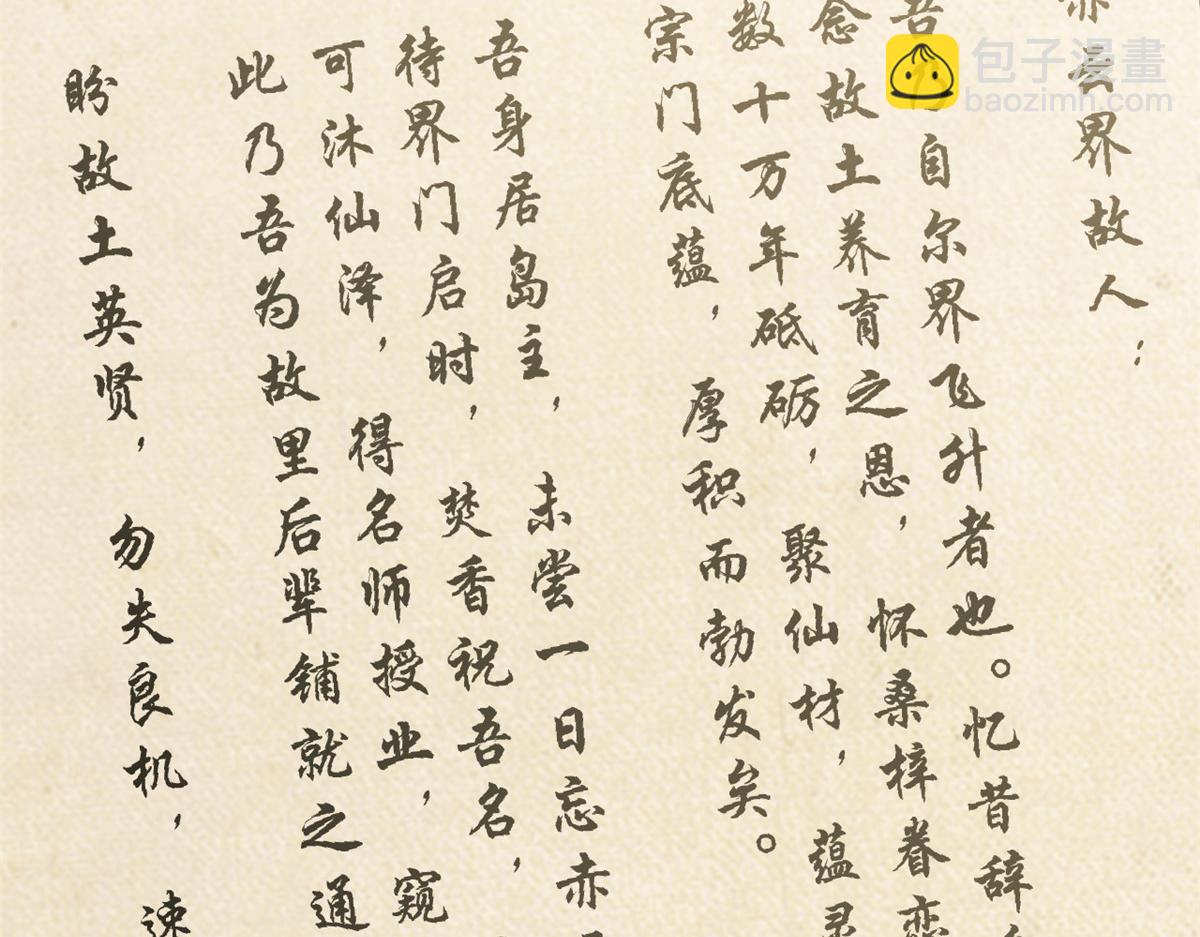 赤云界故人：
吾乃自尔界飞升者也。忆昔辞
念故土养育之恩，怀桑梓眷恋
数十万年砥砺，聚仙材，蕴灵
宗门底蕴，厚积而勃发矣。
吾身居岛主，未尝一日忘赤
待界门启时，焚香祝吾名，
可沐仙泽，得名师授业，窥
此乃吾为故里后辈铺就之通
盼故土英贤，勿失良机，速
包子漫畫
baozimh.com